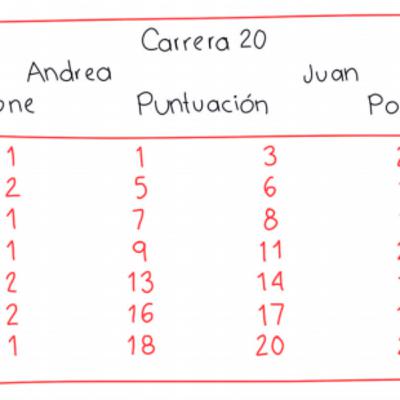 Carrera 20
Andrea Juan
one Puntuación Po
1 1 3
2 5 6
1 7 8
1 9 11
2 13 14
2 16 17
1 18 20